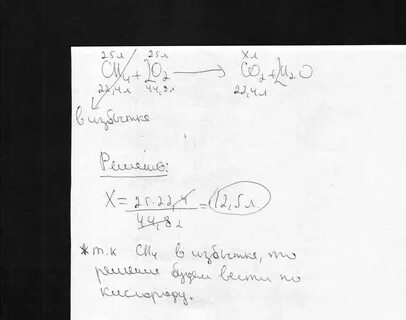 25л 25л Xл
CH4 + 2O2 → CO2 + 2H2O
22,4л 44,8л 22,4л
в избытке
Решение:
X = 25·22,4 / 44,8 2 = 12,5л.
*т.к CH4 в избытке, то
решение будем вести по
кислороду.